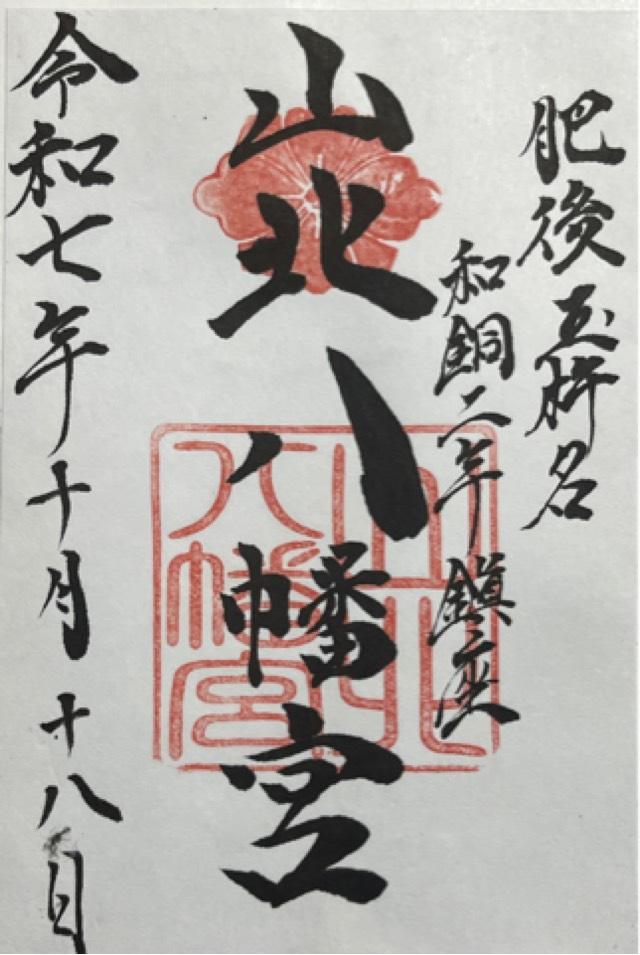 肥後玉杵名
和銅二年鎮座
山北八幡宮
山北
八幡宮
令和七年十月十八日